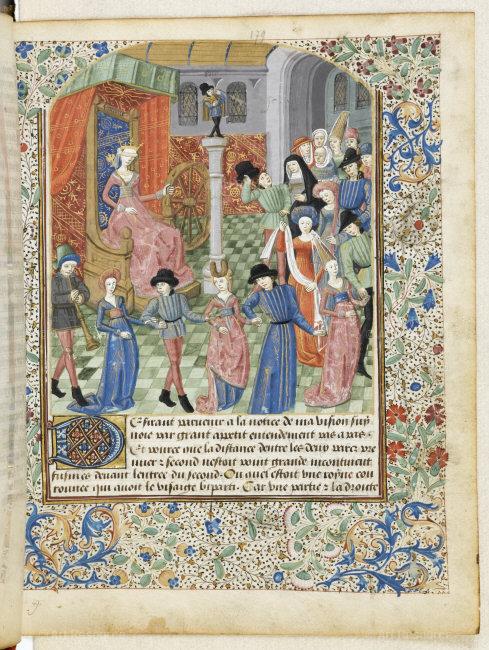 179
Et suiant paruenir a la notice de ma vision sup
noie par grant appetit entendement pas a pas
Et pource que la distance dentre les deux parcz pre
mier & second nestoit point grande incontinent
fusmes deuant lentree du second. Ou quel estoit vne royne cou
ronnee qui auoit le visaige biparti. Car vne partie & la droite